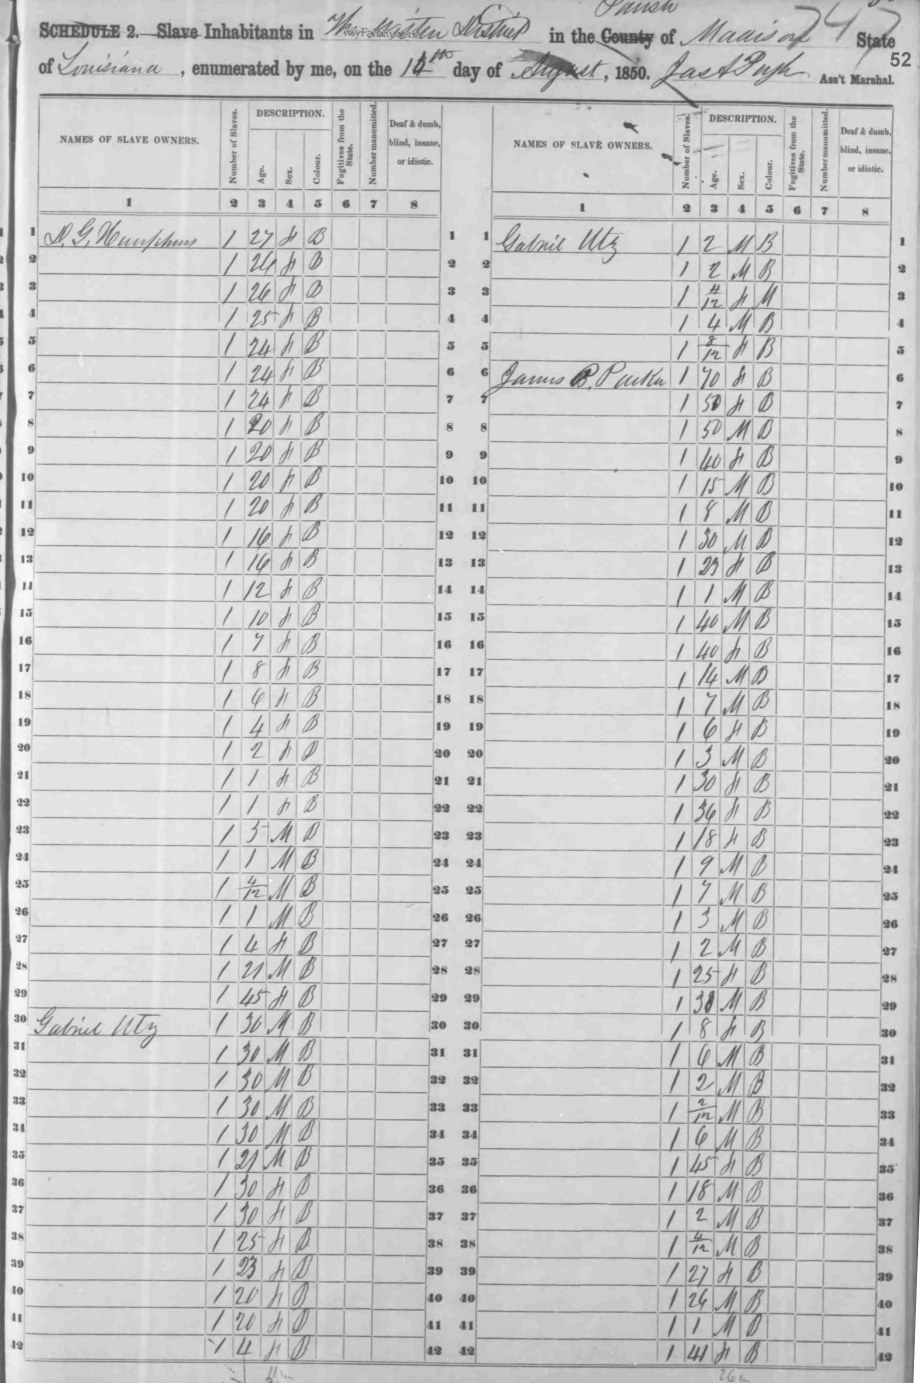 Parish
SCHEDULE 2. Slave Inhabitants in Western District in the County of Madison State 52
of Louisiana, enumerated by me, on the 14th day of August, 1850. Jas A Pugh Ass't Marshal.
NAMES OF SLAVE OWNERS. Number of Slaves. DESCRIPTION. Age. Sex. Colour. Fugitives from the State. Number manumitted. Deaf & dumb, blind, insane, or idiotic.
1 2 3 4 5 6 7 8
1 D. G. Humphries 1 27 F B 1
2 1 26 F B 2
3 1 26 F B 3
4 1 25 F B 4
5 1 24 F B 5
6 1 24 F B 6
7 1 24 F B 7
8 1 20 F B 8
9 1 20 F B 9
10 1 20 F B 10
11 1 20 F B 11
12 1 16 F B 12
13 1 16 F B 13
14 1 12 F B 14
15 1 10 F B 15
16 1 7 F B 16
17 1 8 F B 17
18 1 6 F B 18
19 1 4 F B 19
20 1 2 F B 20
21 1 1 F B 21
22 1 1 F B 22
23 1 5 M B 23
24 1 1 M B 24
25 1 4/12 M B 25
26 1 1 M B 26
27 1 4 F B 27
28 1 21 M B 28
29 1 45 F B 29
30 Gabriel Utz 1 30 M B 30
31 1 30 M B 31
32 1 30 M B 32
33 1 30 M B 33
34 1 30 M B 34
35 1 21 M B 35
36 1 30 F B 36
37 1 30 F B 37
38 1 25 F B 38
39 1 23 F B 39
40 1 20 F B 40
41 1 20 F B 41
42 1 4 F B 42
NAMES OF SLAVE OWNERS. Number of Slaves. DESCRIPTION. Age. Sex. Colour. Fugitives from the State. Number manumitted. Deaf & dumb, blind, insane, or idiotic.
1 2 3 4 5 6 7 8
1 Gabriel Utz 1 2 M B 1
2 1 2 M B 2
3 1 4/12 F M 3
4 1 4 M B 4
5 1 8/12 F B 5
6 James B. Parker 1 70 F B 6
7 1 50 F B 7
8 1 50 M B 8
9 1 40 F B 9
10 1 15 M B 10
11 1 8 M B 11
12 1 30 M B 12
13 1 23 F B 13
14 1 1 M B 14
15 1 40 M B 15
16 1 40 F B 16
17 1 14 M B 17
18 1 7 M B 18
19 1 6 F B 19
20 1 3 M B 20
21 1 30 F B 21
22 1 36 F B 22
23 1 18 F B 23
24 1 9 M B 24
25 1 7 M B 25
26 1 3 M B 26
27 1 2 M B 27
28 1 25 F B 28
29 1 M B 29
30 1 8 F B 30
31 1 6 M B 31
32 1 2 M B 32
33 1 2/12 M B 33
34 1 6 M B 34
35 1 45 F B 35
36 1 18 M B 36
37 1 2 M B 37
38 1 4/12 M B 38
39 1 27 F B 39
40 1 26 M B 40
41 1 1 M B 41
42 1 41 F B 42